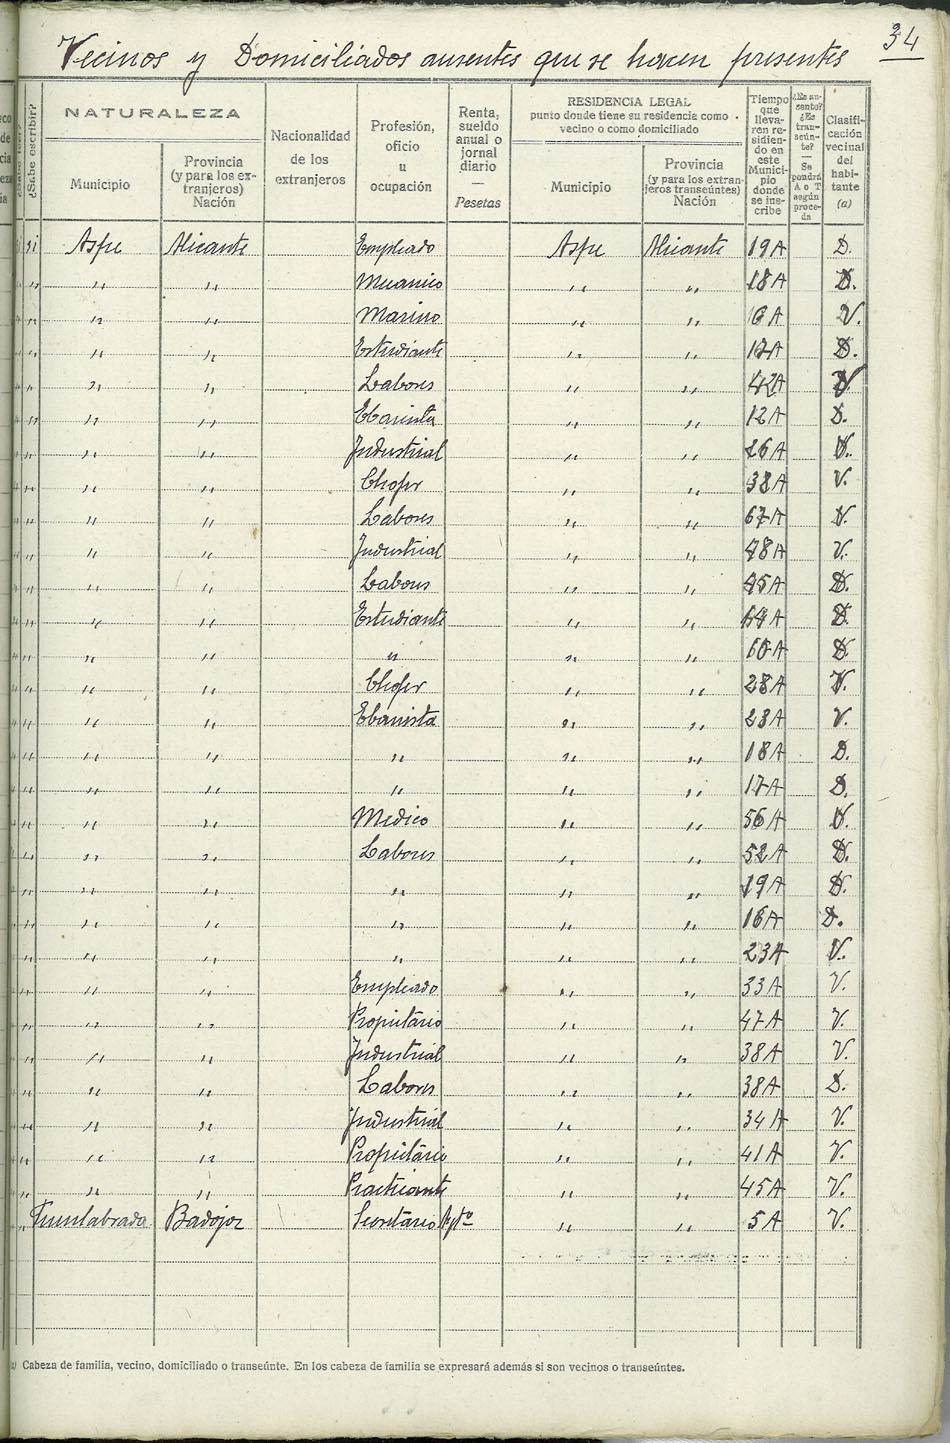 34
Vecinos y Domiciliados ausentes que se hacen presentes
¿Sabe escribir?
NATURALEZA
Municipio
Provincia (y para los extranjeros) Nación
Nacionalidad de los extranjeros
Profesión, oficio u ocupación
Renta, sueldo anual o jornal diario — Pesetas
RESIDENCIA LEGAL
punto donde tiene su residencia como vecino o como domiciliado
Municipio
Provincia (y para los extranjeros transeúntes) Nación
Tiempo que llevaren residiendo en este Municipio donde se inscribe
¿Es ausente? ¿Es transeúnte? — Se pondrá A o T según proceda
Clasificación vecinal del habitante (a)
si Aspe Alicante Empleado Aspe Alicante 19 A D.
" " " Mecanico " " 18 A D.
" " " Marino " " 6 A V.
" " " Estudiante " " A D.
" " " Labores " " 42 A V
" " " Ebanista " " 12 A D.
" " " Industrial " " 26 A V.
" " " Chofer " " 38 A V.
" " " Labores " " 67 A V.
" " " Industrial " " 48 A V.
" " " Labores " " 45 A D.
" " " Estudiante " " A D.
" " " " " " A D
" " " Chofer " " 28 A V.
" " " Ebanista " " 28 A V.
" " " " " " 18 A D.
" " " " " " 17 A D.
" " " Medico " " 56 A V.
" " " Labores " " 52 A D.
" " " " " " 19 A D.
" " " " " " 16 A D.
" " " " " " 23 A V.
" " " Empleado " " 33 A V.
" " " Propietario " " 47 A V.
" " " Industrial " " 38 A V.
" " " Labores " " 38 A D.
" " " Industrial " " 34 A V.
" " " Propietario " " 41 A V.
" " " Practicante " " 45 A V.
" Fuenlabrada Badajoz Secretario Aytº " " 5 A V.
Cabeza de familia, vecino, domiciliado o transeúnte. En los cabeza de familia se expresará además si son vecinos o transeúntes.